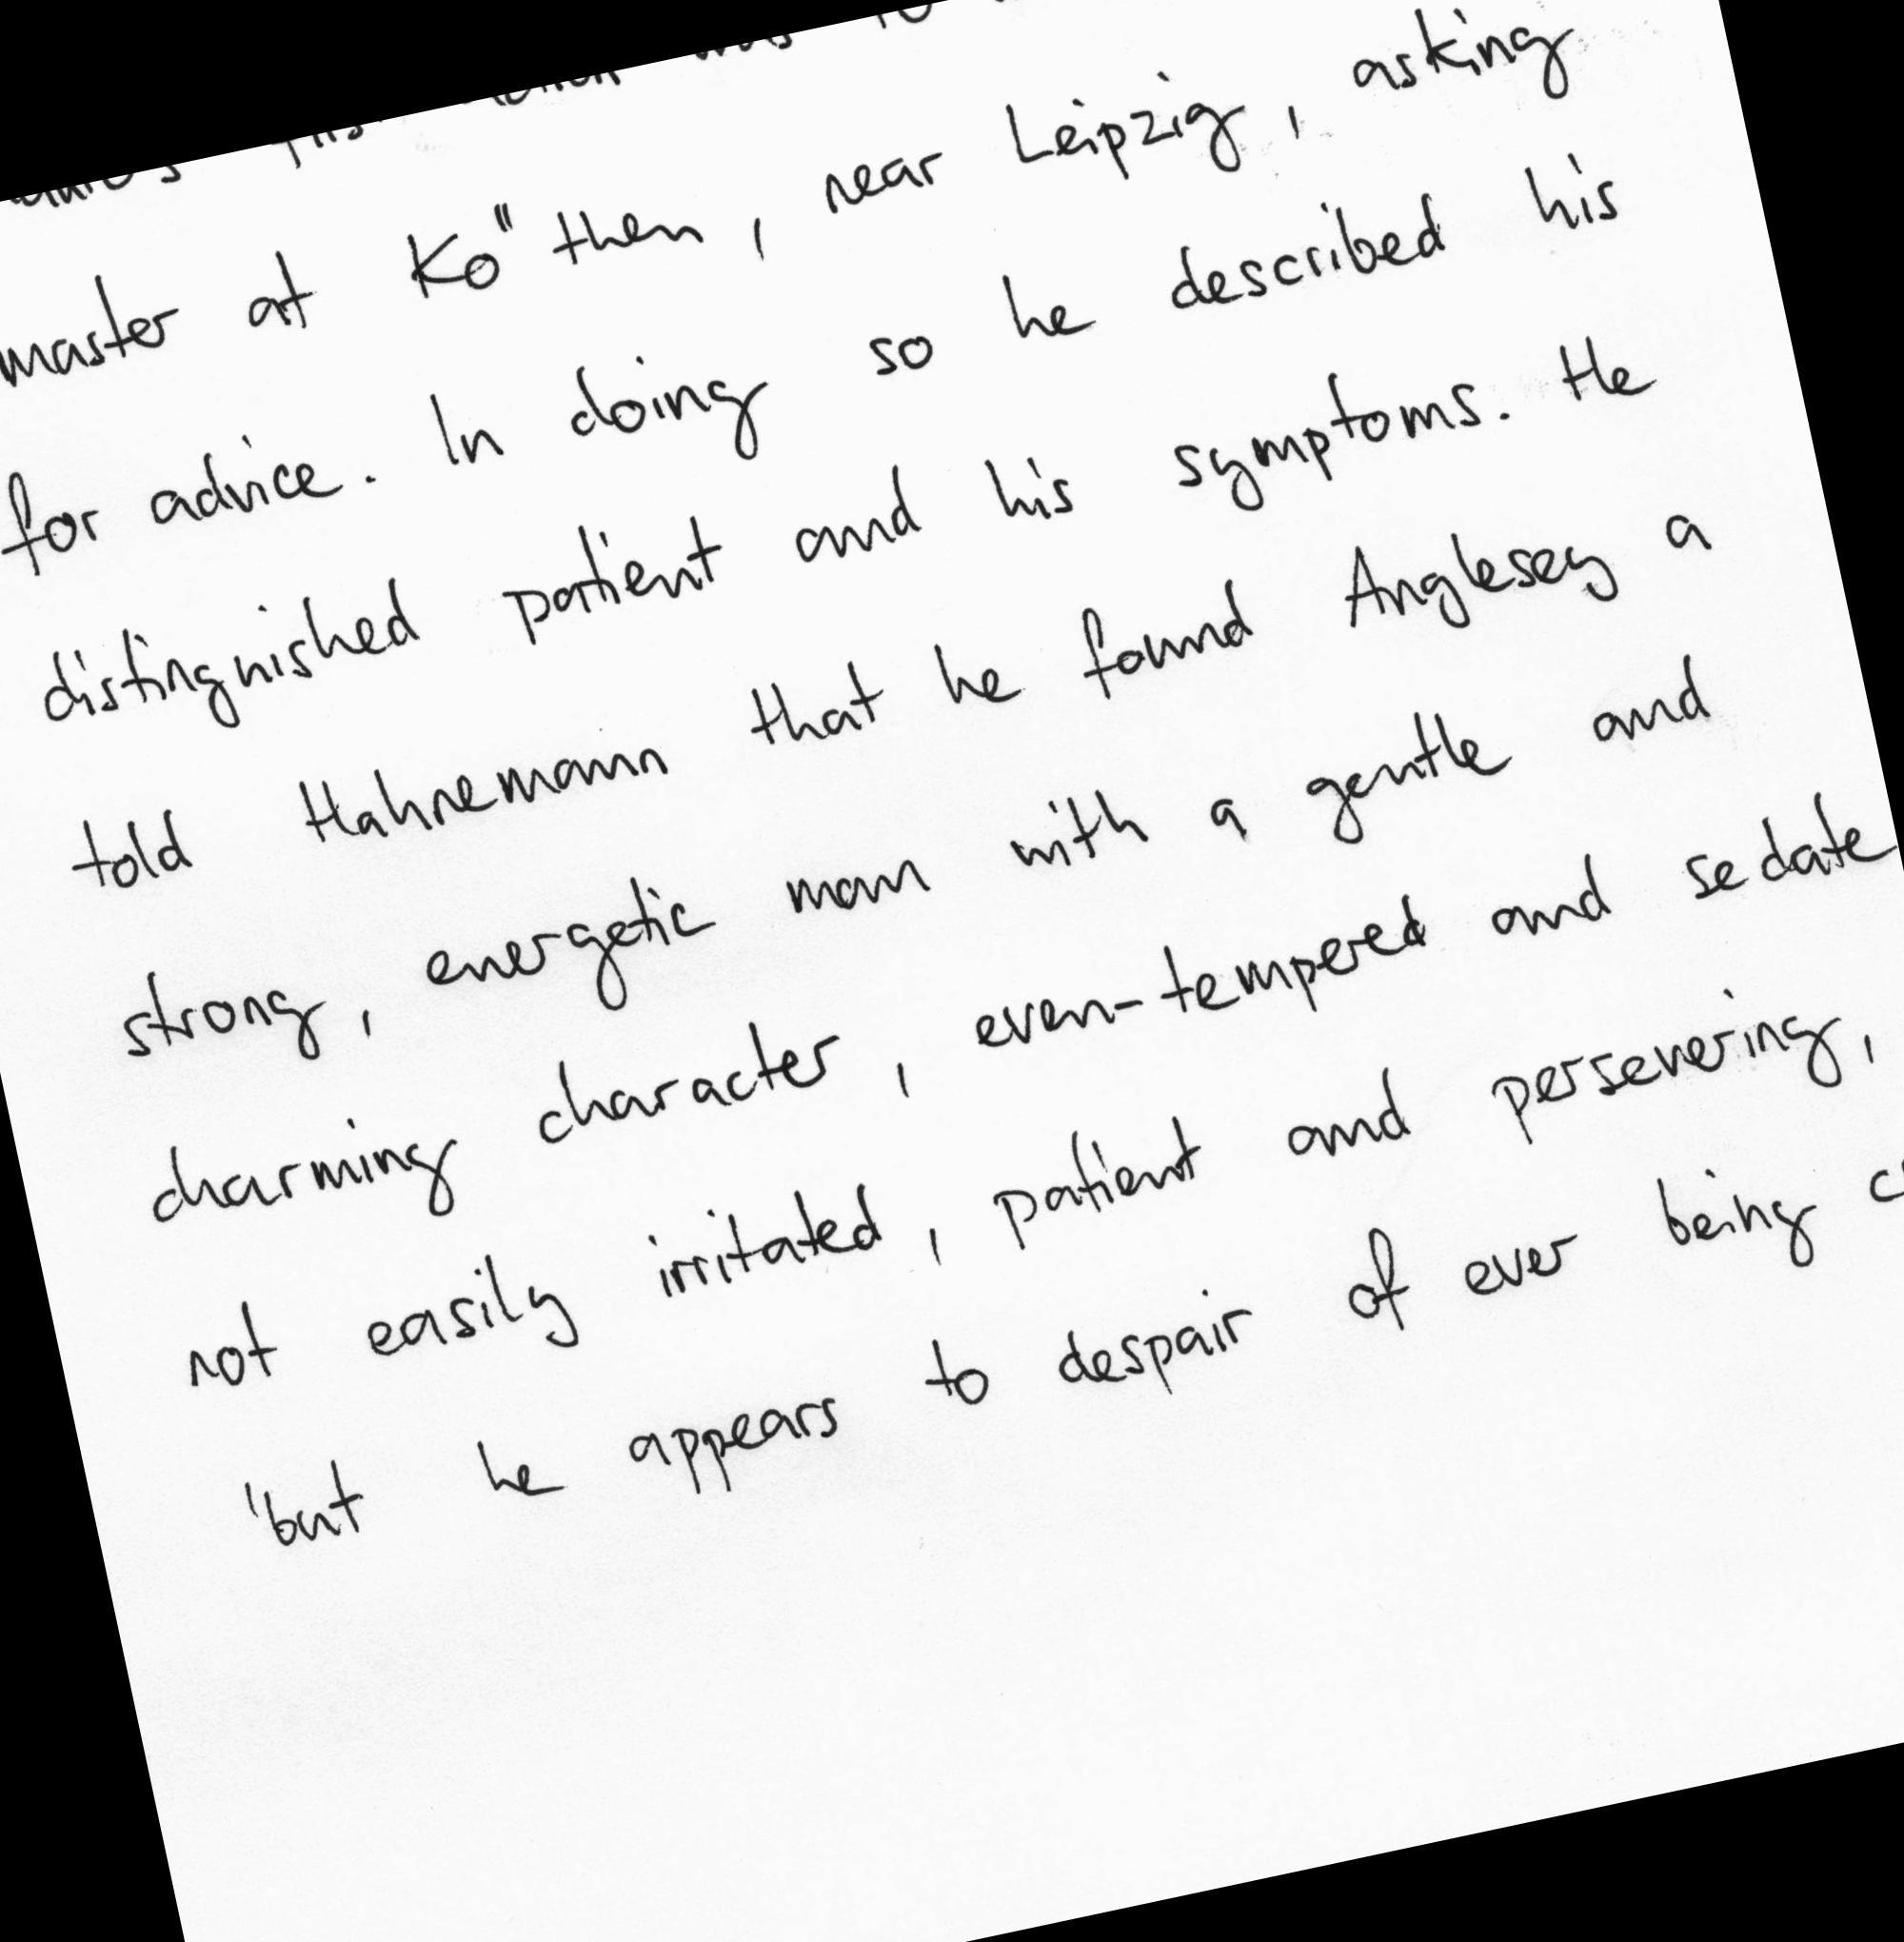 master at Ko" then, near Leipzig, asking
for advice. In doing so he described his
distinguished patient and his symptoms. He
told Hahnemann that he found Anglesey a
strong, energetic man with a gentle and
charming character, even-tempered and sedate
not easily irritated, patient and persevering,
"but he appears to despair of ever being